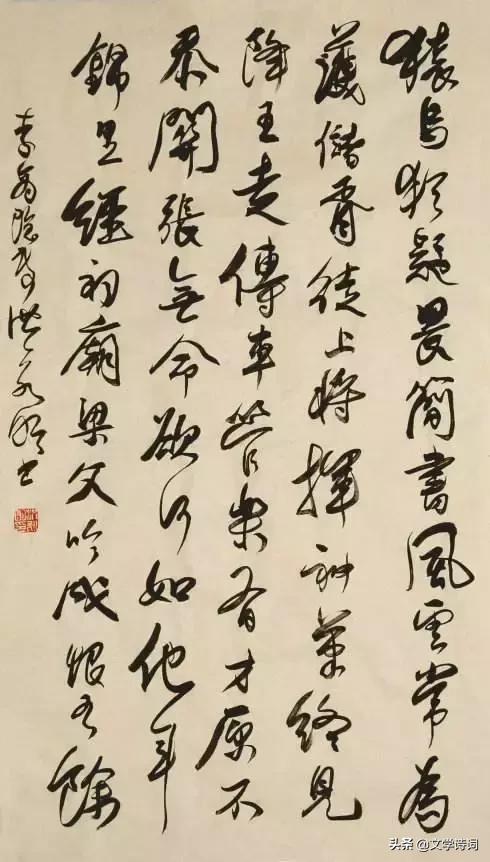 猿鳥猶疑畏簡書風雲常為
護儲胥徒上將揮神筆終見
降王走傳車管樂有才原不
忝關張無命欲何如他年
錦里經祠廟梁父吟成恨有餘
李商隱詩書
头条 @文学诗词